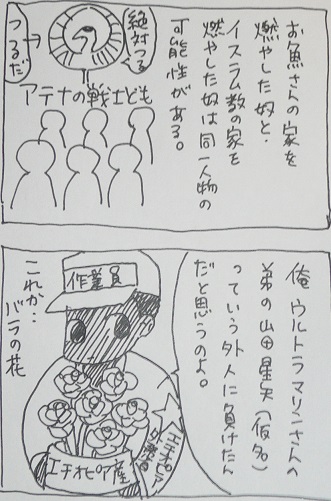 お魚さんの家を
燃やした奴と、
イスラム数の家を
燃やした奴は同一人物の
可能性がある。
絶対つる
つるだ
アテナの戦士ども
俺 ウルトラマリンさんの
弟の山田星矢(仮名)
っていう外人に負けたん
だと思うのよ。
作業員
これが…
バラの花
エチオピア産